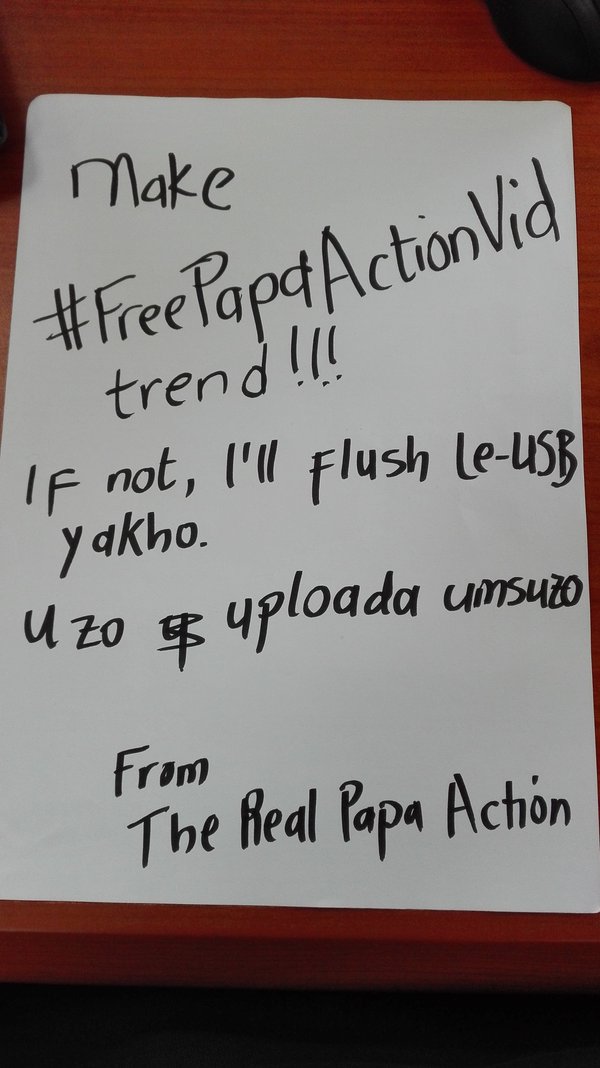 Make
#FreePapaActionVid
trend!!!
If not, I'll flush le-USB
yakho.
Uzo uploada umsuzo
From
The Real Papa Action